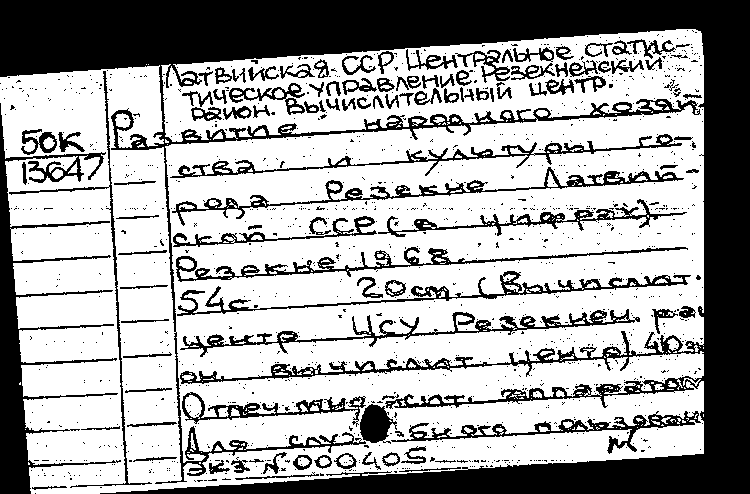 Латвийская ССР. Центральное статис-
тическое управление. Резекненский
район. Вычислительный центр.
50К
13647
Развитие народного хозяй-
ства и культуры го-
рода Резекне Латвий-
ской ССР (в цифрах).
Резекне, 1968.
54с. 20см. (Вычислит.
центр ЦСУ. Резекнен. рай
он. вычислит. центр). 40э
Отпеч. множит. аппаратом
Для слу бного пользован
Экз №000405.